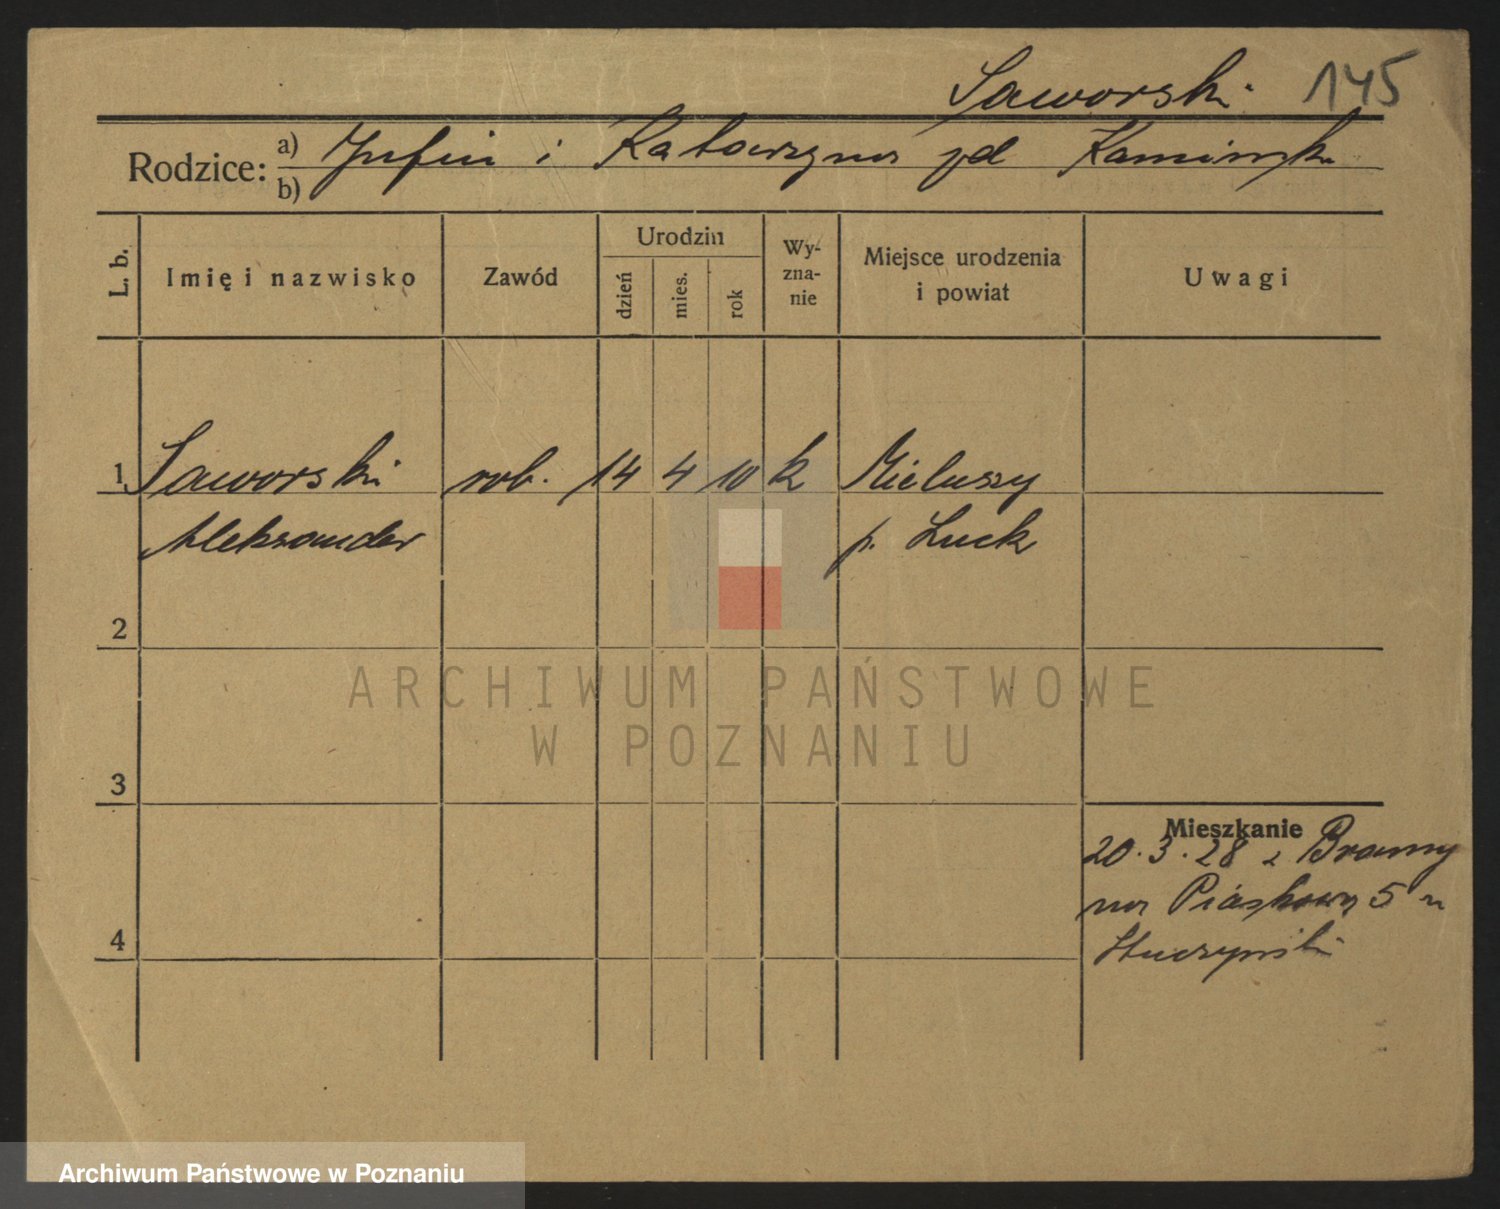 Saworski 145
Rodzice: a) i Katarzyna zd Kamińsk
b)
L. b.
Imię i nazwisko
Zawód
Urodzin
dzień
mies.
rok
Wy-
zna-
nie
Miejsce urodzenia
i powiat
Uwagi
1 Saworski rob. 14 4 10 k
Aleksander p. Łuck
2
3
4
Mieszkanie
20.3.28 z Bramy
na Piaskową 5 u
ARCHIWUM PAŃSTWOWE
W POZNANIU
Archiwum Państwowe w Poznaniu